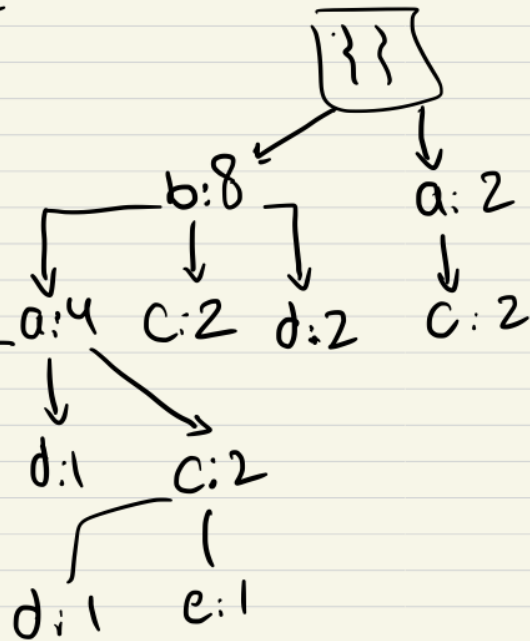 { }
b:8 a:2
a:4 c:2 d:2 c:2
d:1 c:2
d:1 e:1